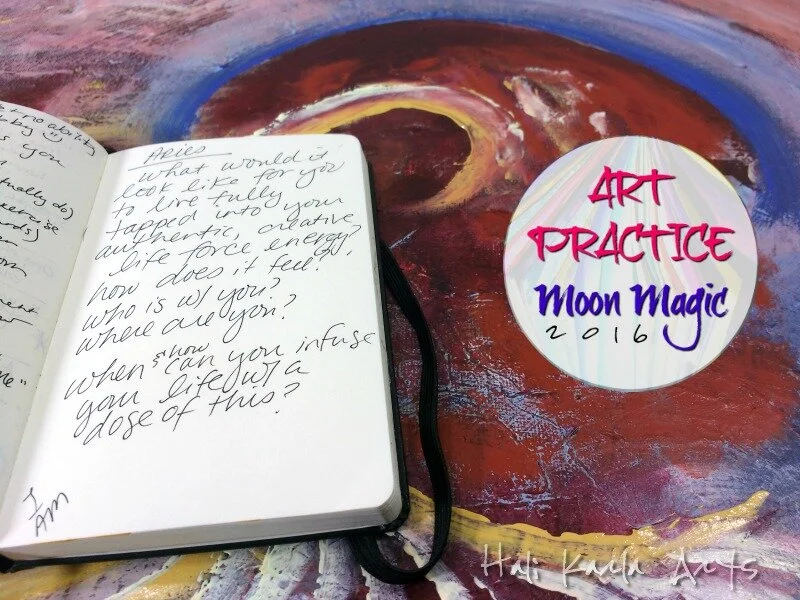 s you
tually do)
exercise
ards)
Aries
what would it
look like for you
to live fully
tapped into your
authentic, creative
life force energy?
how does it feel?
who is w/ you?
where are you?
when & how can you infuse
your life w/ a
dose of this?
I
AM
ART
PRACTICE
Moon Magic
2016
Hali Karla Arts